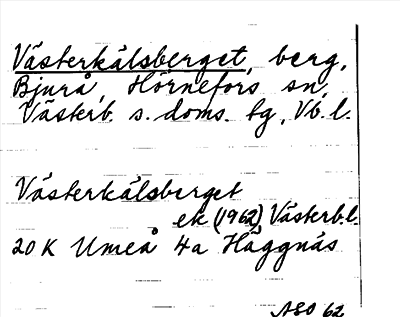 Västerkålsberget, berg,
Bjurå, Hörnefors sn,
Västerb. s. doms. tg, Vb. l.
Västerkålsberget
ek (1962) Västerb. l.
20 K Umeå 4a Häggnäs
ASO 62